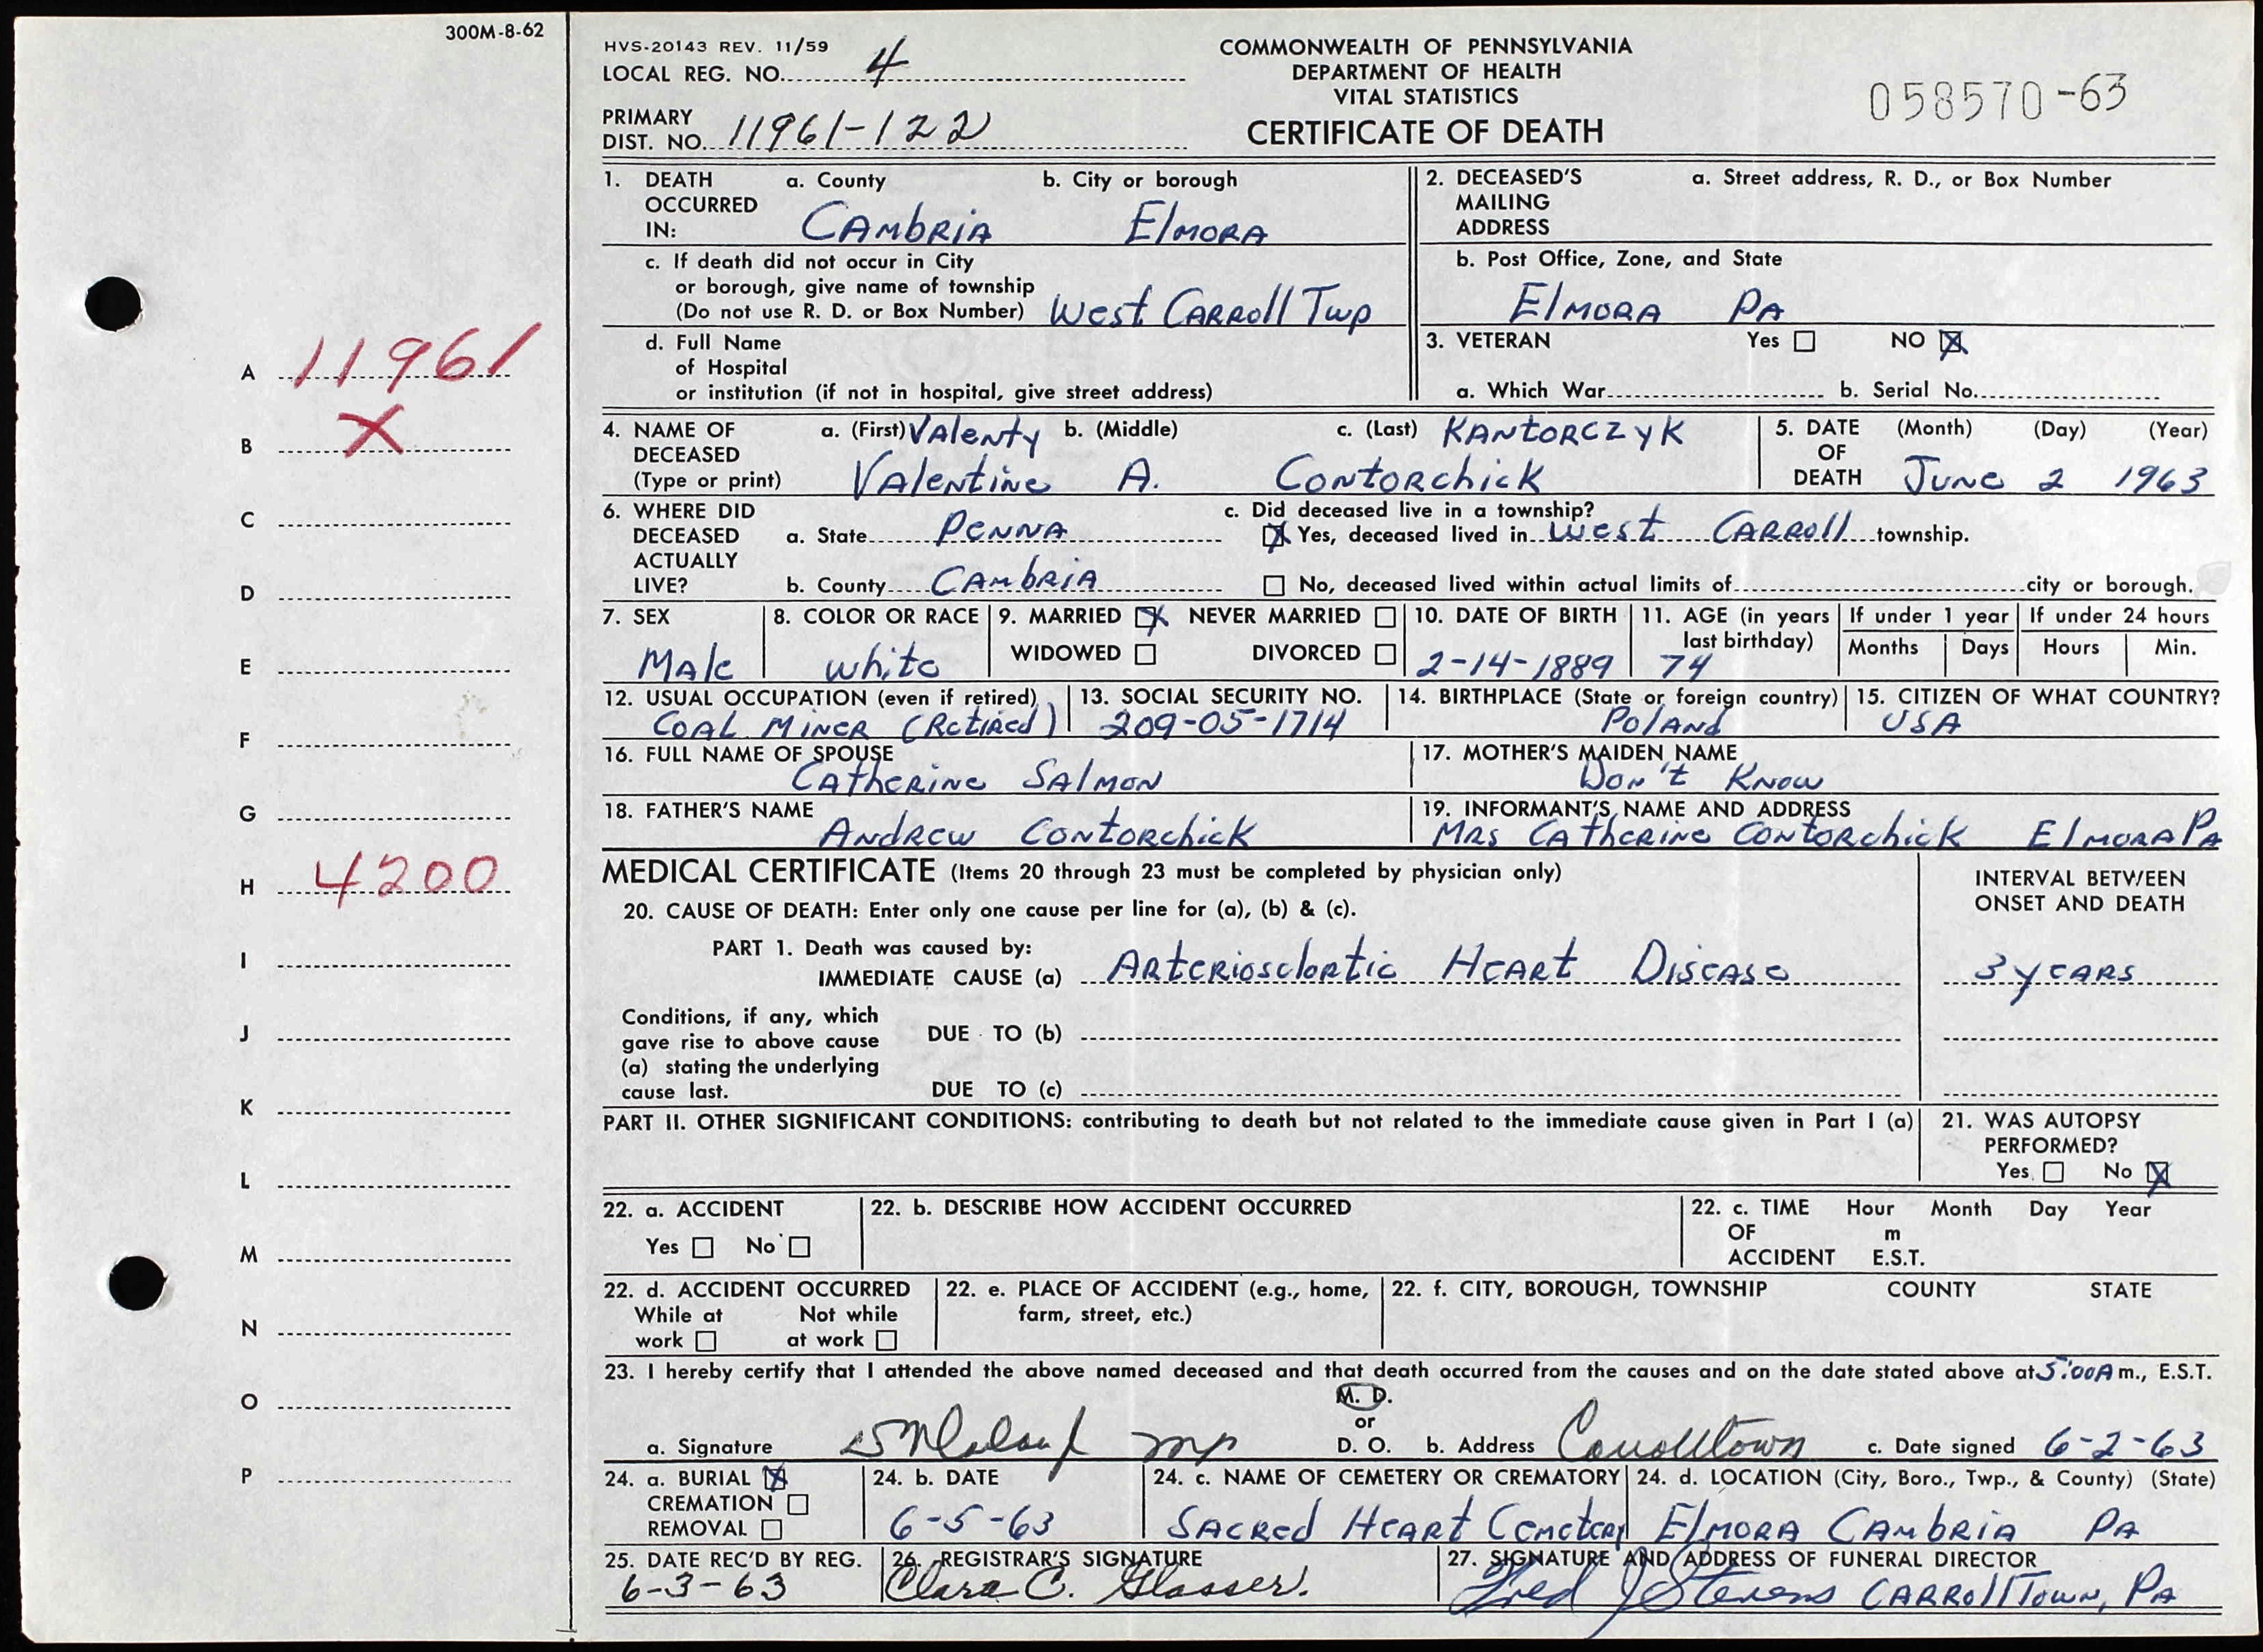 300M-8-62
HVS-20143 REV. 11/59
LOCAL REG. NO. 4
PRIMARY
DIST. NO. 11961-122
COMMONWEALTH OF PENNSYLVANIA
DEPARTMENT OF HEALTH
VITAL STATISTICS
CERTIFICATE OF DEATH
058570-63
1. DEATH OCCURRED IN: a. County CAMbRIA b. City or borough ElMORA
c. If death did not occur in City
or borough, give name of township
(Do not use R. D. or Box Number) West CARRoll Twp
d. Full Name
of Hospital
or institution (if not in hospital, give street address)
2. DECEASED'S MAILING ADDRESS a. Street address, R. D., or Box Number
b. Post Office, Zone, and State
ElMORA PA
3. VETERAN Yes NO X
a. Which War b. Serial No.
4. NAME OF DECEASED (Type or print) a. (First) VAlenty b. (Middle) c. (Last) KANtORCZYK
VAlentine A. ContoRchick
5. DATE OF DEATH (Month) (Day) (Year)
June 2 1963
6. WHERE DID DECEASED ACTUALLY LIVE?
a. State PENNA
b. County CAMbRIA
c. Did deceased live in a township?
X Yes, deceased lived in West CARRoll township.
No, deceased lived within actual limits of city or borough.
7. SEX MAle
8. COLOR OR RACE white
9. MARRIED X NEVER MARRIED
WIDOWED DIVORCED
10. DATE OF BIRTH 2-14-1889
11. AGE (in years last birthday) 74
If under 1 year Months Days
If under 24 hours Hours Min.
12. USUAL OCCUPATION (even if retired) COAL MINER (Retired)
13. SOCIAL SECURITY NO. 209-05-1714
14. BIRTHPLACE (State or foreign country) PolANd
15. CITIZEN OF WHAT COUNTRY? USA
16. FULL NAME OF SPOUSE CAtheRine SAlmon
17. MOTHER'S MAIDEN NAME Don't Know
18. FATHER'S NAME ANdRew ContoRchick
19. INFORMANT'S NAME AND ADDRESS MRs CAtheRine ContoRchick ElmoRA PA
MEDICAL CERTIFICATE (Items 20 through 23 must be completed by physician only)
INTERVAL BETWEEN
ONSET AND DEATH
20. CAUSE OF DEATH: Enter only one cause per line for (a), (b) & (c).
PART 1. Death was caused by:
IMMEDIATE CAUSE (a) ARteRiosclortic HeARt DiseAse 3 yeARs
Conditions, if any, which
gave rise to above cause
(a) stating the underlying
cause last.
DUE TO (b)
DUE TO (c)
PART II. OTHER SIGNIFICANT CONDITIONS: contributing to death but not related to the immediate cause given in Part I (a)
21. WAS AUTOPSY
PERFORMED?
Yes No X
22. a. ACCIDENT
Yes No
22. b. DESCRIBE HOW ACCIDENT OCCURRED
22. c. TIME OF ACCIDENT Hour Month Day Year
m
E.S.T.
22. d. ACCIDENT OCCURRED
While at work Not while at work
22. e. PLACE OF ACCIDENT (e.g., home,
farm, street, etc.)
22. f. CITY, BOROUGH, TOWNSHIP COUNTY STATE
23. I hereby certify that I attended the above named deceased and that death occurred from the causes and on the date stated above at 5:00A m., E.S.T.
a. Signature
M. D.
or
D. O.
b. Address Carrolltown c. Date signed 6-2-63
24. a. BURIAL X
CREMATION
REMOVAL
24. b. DATE
6-5-63
24. c. NAME OF CEMETERY OR CREMATORY
SACRed HeARt Cemetery
24. d. LOCATION (City, Boro., Twp., & County) (State)
ElMORA CAMbRIA PA
25. DATE REC'D BY REG.
6-3-63
26. REGISTRAR'S SIGNATURE
Clara C. Glasser.
27. SIGNATURE AND ADDRESS OF FUNERAL DIRECTOR
Fred J Stevens CARRollTown, PA
A 11961
B X
C
D
E
F
G
H 4200
I
J
K
L
M
N
O
P